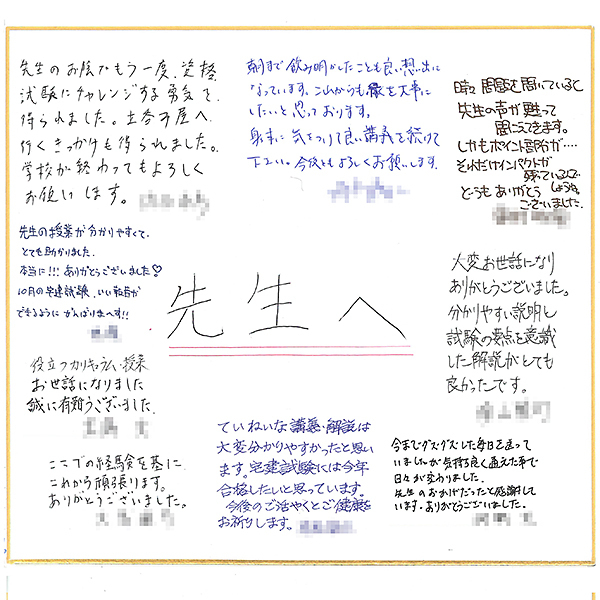 先生のお陰でもう一度、資格
試験にチャレンジする勇気を
得られました。土志田屋へ
行くきっかけも得られました。
学校が終わってもよろしく
お願いします。
朝まで飲み明かしたことも良い想い出に
なっています。これからも縁を大事に
したいと思っております。
身体に気をつけて良い講義を続けて
下さい。今後ともよろしくお願いします。
時々問題を聞いていると
先生の声が甦って
聞こえてきます。
しかもポイント部分が‥‥
それだけインパクトが
残っているので
どうもありがとう
ございました。
先生の授業が分かりやすくて、
とても助かりました。
本当に!!!ありがとうございました♡
10月の宅建試験、いい報告が
できるようにがんばりまーす!!
先生へ
大変お世話になり
ありがとうございました。
分かりやすい説明と
試験の要点を意識
した解説がとても
良かったです。
役立つカリキュラム・授業
お世話になりました
誠に有難うございました。
ていねいな講義・解説は
大変分かりやすかったと思い
ます。宅建試験には今年
合格したいと思っています。
今後のご活やくとご健康を
お祈りします。
今までグズグズした毎日を送って
いましたが気持ち良く通えた事で
日々が変わりました。
先生のおかげだったと感謝して
います。ありがとうございました。
ここでの経験を基に
これから頑張ります。
ありがとうございました。